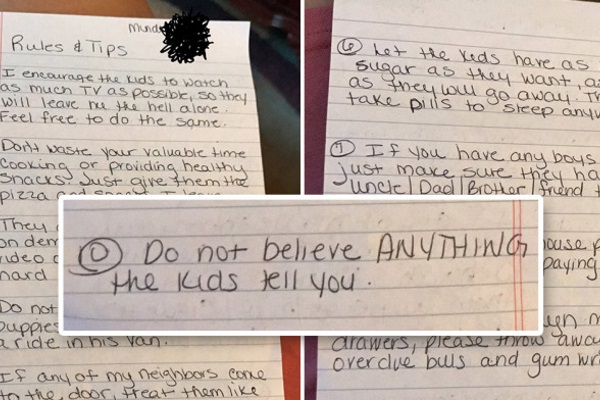 Rules & Tips
I encourage the kids to watch
as much TV as possible, so they
will leave me the hell alone.
Feel free to do the same.
Don't waste your valuable time
cooking or providing healthy
snacks. Just give them the
pizza and
They
on dem
video
hard
Do not
puppies
a ride in his van.
If any of my neighbors come
to the door, treat them like
⑥ Let the kids have as
sugar as they want, as
as they will go away.
take pills to sleep
⑦ If you have any boys
just make sure they
uncle/Dad/Brother/friend
house
paying
drawers, please throw away
overdue bills and gum
⑩ Do not believe ANYTHING
the kids tell you.